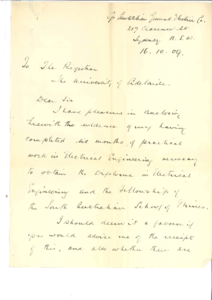 c/o Australian General Electric Co.
217 Clarence St
Sydney N.S.W.
16.10.09.
To The Registrar
The University of Adelaide.
Dear Sir
I have pleasure in enclosing
herewith the evidence of my having
completed six months of practical
work in Electrical Engineering necessary
to obtain the Diploma in Electrical
Engineering and the Fellowship of
the South Australian School of Mines.
I should deem it a favor if
you would advise me of the receipt
of this, and also whether there are